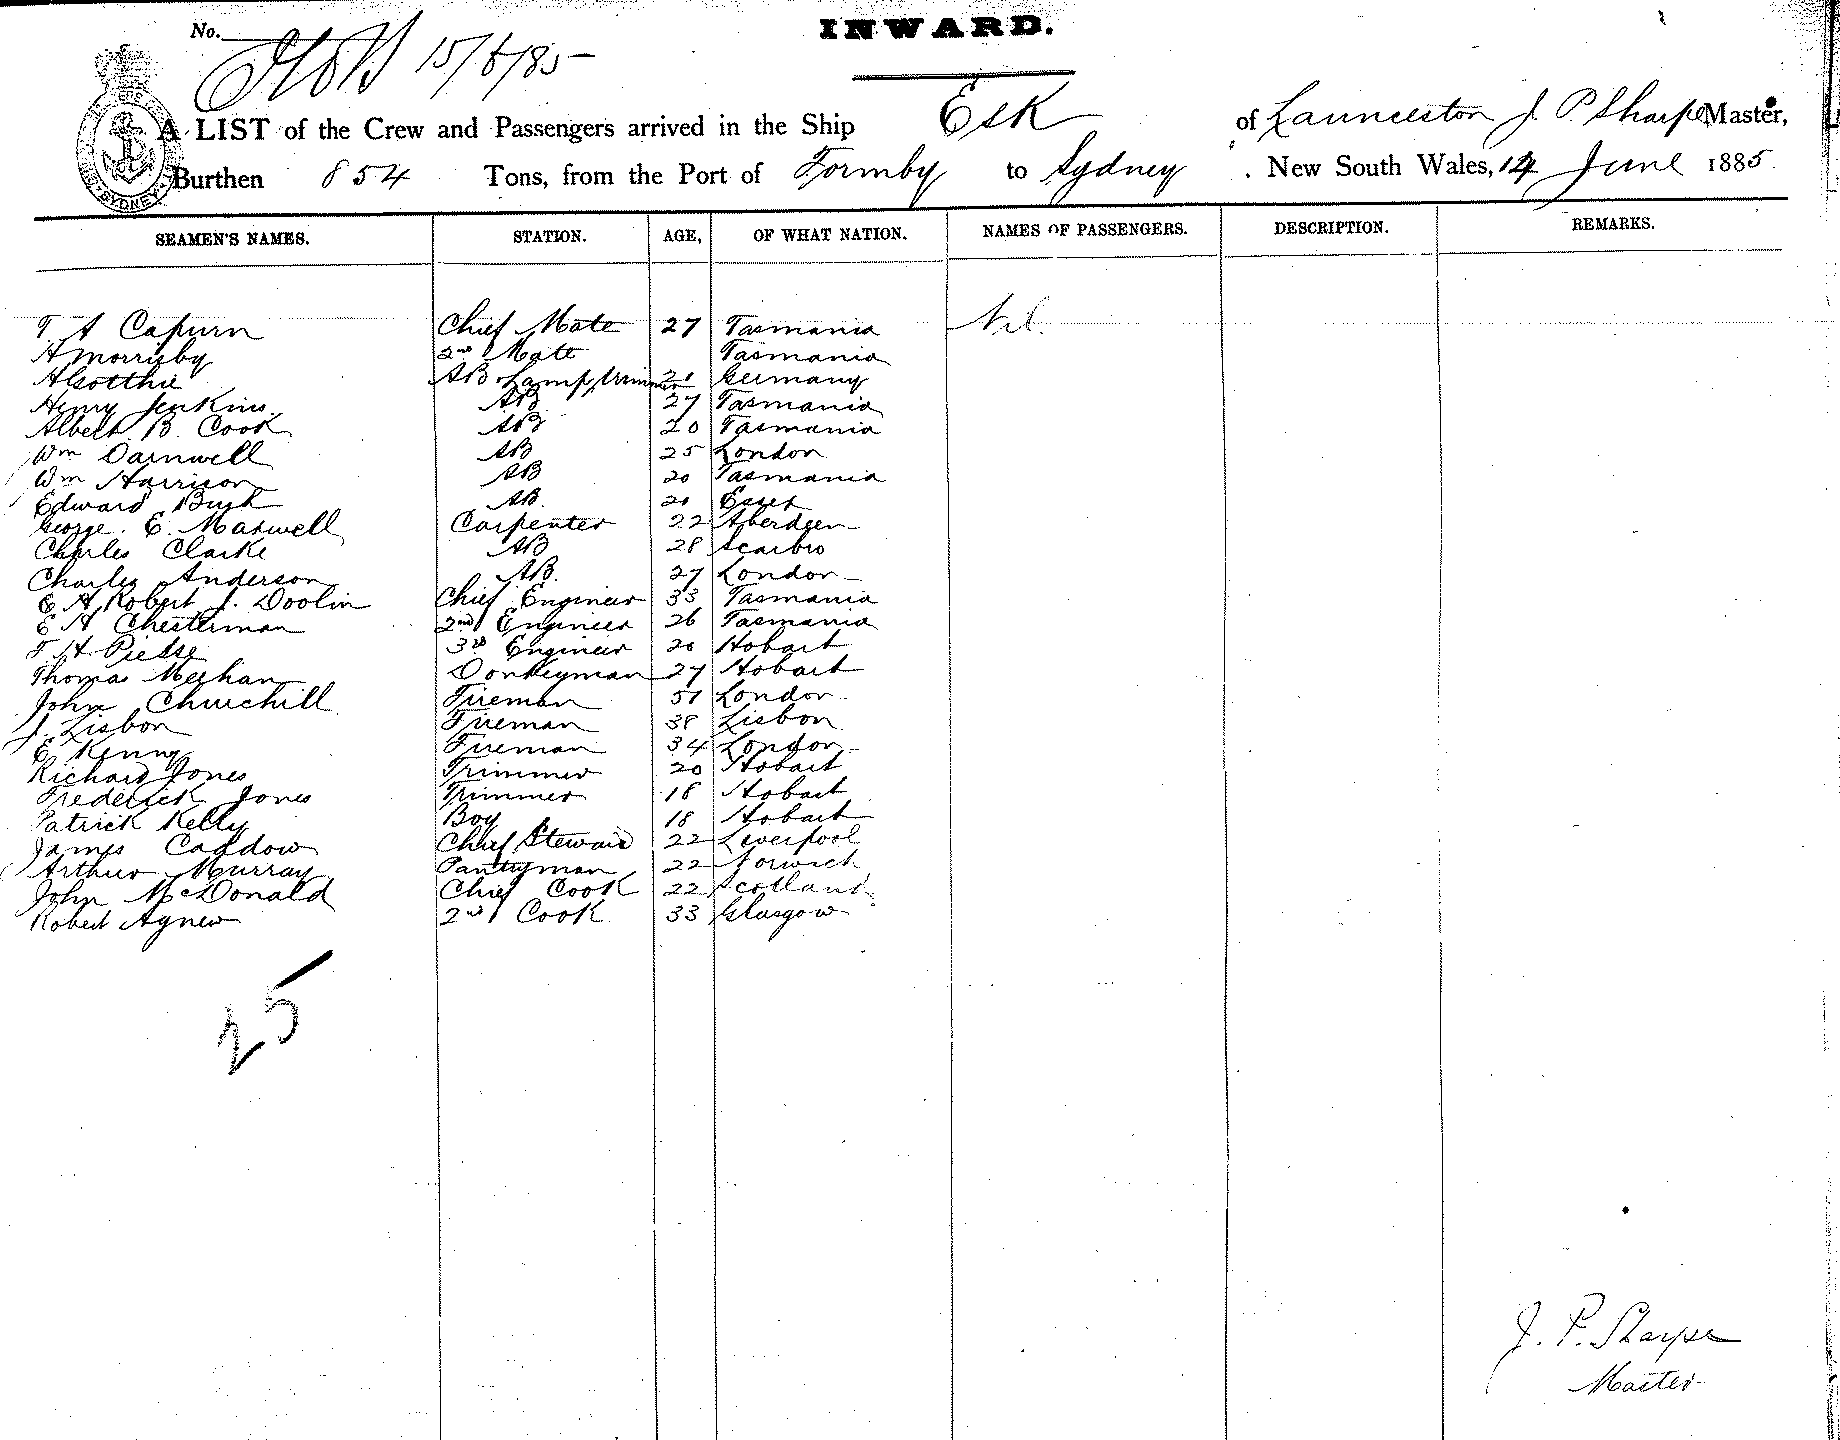 INWARD.
No. 15/6/85
A LIST of the Crew and Passengers arrived in the Ship Esk of Launceston J. P Sharpe Master,
Burthen 854 Tons, from the Port of Formby to Sydney. New South Wales, 14 June 1885
SEAMEN'S NAMES. STATION. AGE, OF WHAT NATION. NAMES OF PASSENGERS. DESCRIPTION. REMARKS.
T A Capurn Chief Mate 27 Tasmania Nil.
A Morrisby 2nd Mate Tasmania
AB & Lamp trimmer 21 Germany
Henry Jenkins AB 27 Tasmania
Albert B. Cook AB 20 Tasmania
Wm Darnwell AB 25 London
Wm Harrison AB 20 Tasmania
Edward Bush AB 20 Essex
George. E. Maxwell Carpenter 22 Aberdeen
Charles Clarke AB 28 Scarbro
Charles Anderson AB. 27 London
E A Robert J. Doolin Chief Engineer 33 Tasmania
E A Chesterman 2nd Engineer 26 Tasmania
T H Piesse 3rd Engineer 20 Hobart
Thomas Meehan Donkeyman 27 Hobart
John Churchill Fireman 51 London
J. Lisbon Fireman 38 Lisbon
E Kenny Fireman 34 London
Richard Jones Trimmer 20 Hobart
Frederick Jones Trimmer 18 Hobart
Patrick Kelly Boy 18 Hobart
James Caddow Chief Steward 22 Liverpool
Arthur Murray Pantryman 22 Norwich
John McDonald Chief Cook 22 Scotland
Robert Agnew 2nd Cook 33 Glasgow
25
J. P. Sharpe
Master